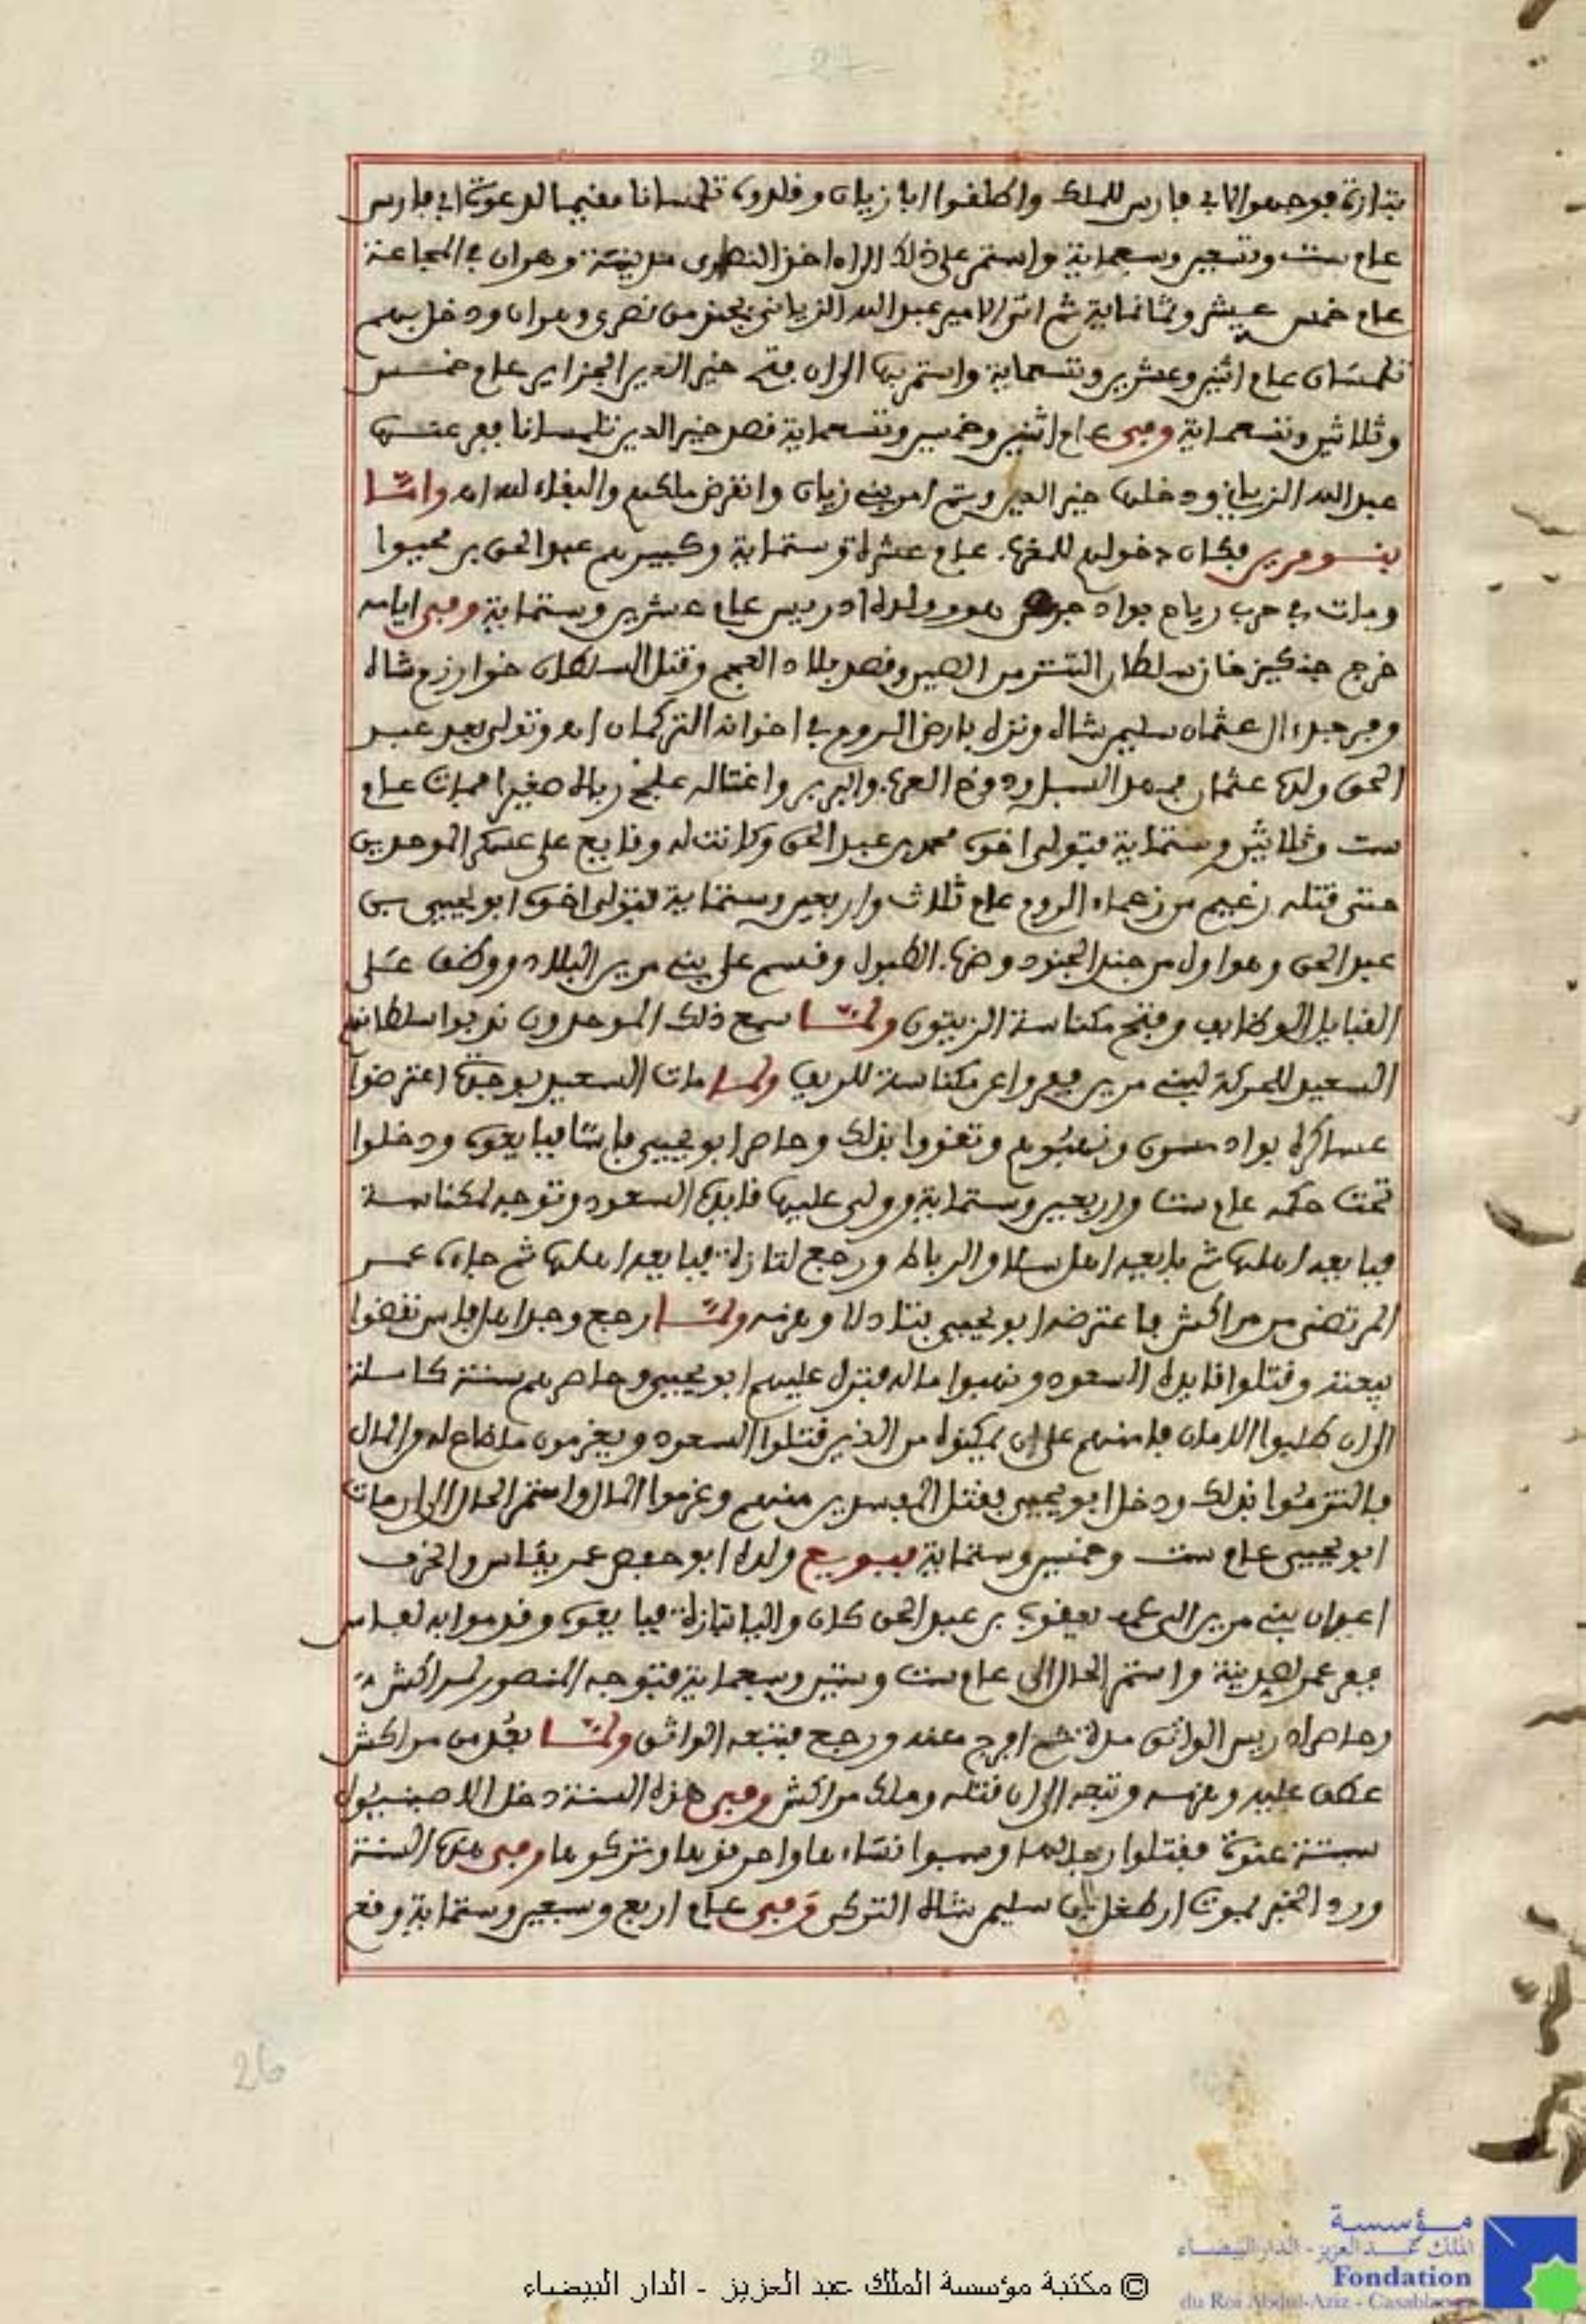 بتازة فوجهوا لابي فارس للملك واطلقوا ابا زيان وقلدوه تلمسانا مقيما لدعوة ابي فارس
عام ست وتسعين وسبعماية واستمر على ذلك الى ان اخذ النصرى مدينة وهران في المجاعة
عام خمس عشر وثمانماية ثم اتى الامير عبد الله الزياني بجند من نصرى وهران ودخل بهم
تلمسان عام اثنين وعشرين وتسعماية واستمر بها الى ان فتح خير الدين الجزاير عام خمس
وثلاثين وتسعماية وفي عام اثنين وخمسين وتسعماية قصد خير الدين تلمسانا ففر عنها
عبد الله الزياني ودخلها خير الدين وتم امر بني زيان وانقرض ملكهم والبقاء لله اه واما
بنو مرين فكان دخولهم للمغرب عام عشرة وستماية وكبيرهم عبد الحق بن محيوا
ومات في حرب رياح بواد هو وولده ادريس عام عشرين وستماية وفي ايامه
خرج جنكيز خان سلطان التتر من الصين وقصد بلاد العجم وقتل السلطان خوارزم شاه
وفر جد ءال عثمان سليم شاه ونزل بارض الروم في اخوانه التركمان اه وتولى بعد عبد
الحق ولده عثمان فمهد السبل ودوخ العرب والبربر واغتاله علج رباه صغيرا فمات عام
ست وثلاثين وستماية فتولى اخوه محمد بن عبد الحق وكانت له وقايع على عسكر الموحدين
حتى قتله زعيم من زعماء الروم عام ثلاث واربعين وستماية فتولى اخوه ابو يحيى بن
عبد الحق وهو اول من جند الجنود وضرب الطبول وقسم على بني مرين البلاد ووظف على
القبايل الوظايف وفتح مكناسة الزيتون ولما سمع ذلك الموحدون ندبوا سلطانهم
السعيد للحركة لبني مرين ففروا عن مكناسة للريف ولما مات السعيد بوجدة اعترضوا
عساكره بواد ونهبوهم وتقووا بذلك وحاصر ابو يحيى فاسا فبايعوه ودخلوا
تحت حكمه عام ست واربعين وستماية وولى عليها قايده السعود وتوجه لمكناسة
فبايعه اهلها ثم بايعه اهل سلا والرباط ورجع لتازة فبايعه اهلها ثم جاءه عمر
المرتضى من مراكش فاعترضه ابو يحيى بتادلا وهزمه ولما رجع وجد اهل فاس نقضوا
بيعته وقتلوا قايده السعود ونهبوا ماله فنزل عليهم ابو يحيى وحاصرهم سنة كاملة
الى ان طلبوا الامان فامنهم على ان يمكنوه من الذين قتلوا السعود ويغرمون ما ضاع له والمال
فالتزموا بذلك ودخل ابو يحيى فقتل المفسدين منهم وغرموا المال واستمر الحال الى ان مات
ابو يحيى عام ست وخمسين وستماية فبويع ولده ابو حفص عمر بفاس وانحرف
اعيان بني مرين الى عمه يعقوب بن عبد الحق كان واليا بتازة فبايعوه وقدموا به لفاس
ففر عمر واستمر الحال الى عام ست وستين وسبعماية فتوجه المنصور لمراكش
وحاصر ادريس الواثق مدة ثم افرج عنه ورجع فتبعه الواثق ولما بعد من مراكش
عطف عليه وهزمه وتبعه الى ان قتله وملك مراكش وفي هذه السنة دخل الاصبنيول
سبتة عنوة فقتلوا رجالها وسبوا نساءها واحرقوها وتركوها وفي هذه السنة
ورد الخبر بموت ارطغل بن سليم شاه التركي وفي عام اربع وسبعين وستماية وقع
26
مؤسسة
الملك عبد العزيز - الدار البيضاء
Fondation
du Roi Abdul-Aziz - Casablanca
© مكتبة مؤسسة الملك عبد العزيز - الدار البيضاء